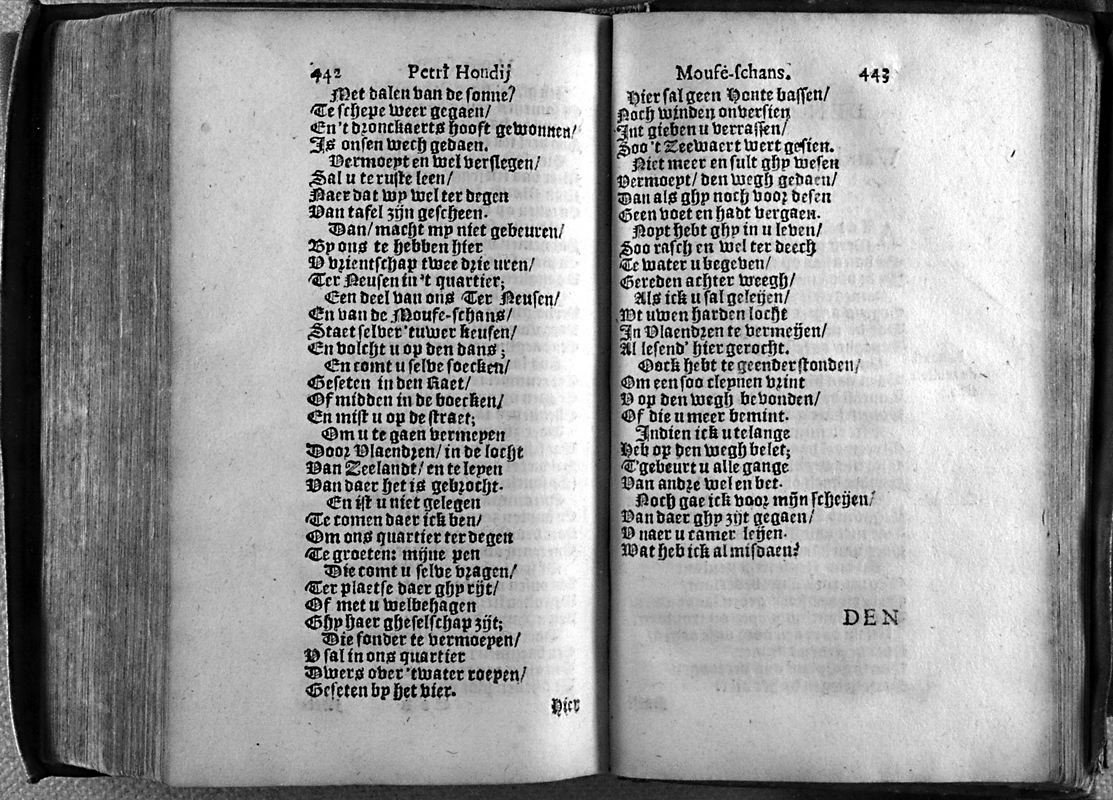 442 Petri Hondij
Met dalen van de sonne?
Te schepe weer gegaen/
En't dronckaerts hooft gewonnen/
Is onsen wech gedaen.
Vermoeyt en wel verslegen/
Sal u te ruste leen/
Naer dat wy wel ter degen
Van tafel zijn gescheen.
Dan/ macht my niet gebeuren/
By ons te hebben hier
V vrientschap twee drie uren/
Ter Neusen in 't quartier;
Een deel van ons Ter Neusen/
En van de Moufe-schans/
Staet selver 'tuwer keusen/
En volcht u op den dans;
En comt u selve soecken/
Geseten in den Raet/
Of midden in de boecken/
En mist u op de straet;
Om u te gaen vermeyen
Door Vlaendren/ in de locht
Van Zeelandt/ en te leyen
Van daer het is gebrocht.
En ist u niet gelegen
Te comen daer ick ben/
Om ons quartier ter degen
Te groeten: mijne pen
Die comt u selve vragen/
Ter plaetse daer ghy rijt/
Of met u welbehagen
Ghy haer gheselschap zijt;
Die sonder te vermoeyen/
V sal in ons quartier
Dwers over 'twater roepen/
Geseten by het vier.
Hier
Moufe-schans. 443
Hier sal geen Honte bassen/
Noch winden onversien
Int gieben u verrassen/
Soo 't Zeewaert wert gesien.
Niet meer en sult ghy wesen
Vermoeyt/ den wegh gedaen/
Dan als ghy noch voor desen
Geen voet en hadt vergaen.
Noyt hebt ghy in u leven/
Soo rasch en wel ter deech
Te water u begeven/
Gereden achter weegh/
Als ick u sal geleijen/
Wt uwen harden locht
In Vlaendren te vermeijen/
Al lesend' hier gerocht.
Oock hebt te geender stonden/
Om een soo cleynen vrint
V op den wegh bevonden/
Of die u meer bemint.
Indien ick u te lange
Heb op den wegh belet;
T'gebeurt u alle gange
Van andre wel en bet.
Noch gae ick voor mijn scheijen/
Van daer ghy zijt gegaen/
V naer u camer leijen.
Wat heb ick al misdaen?
DEN